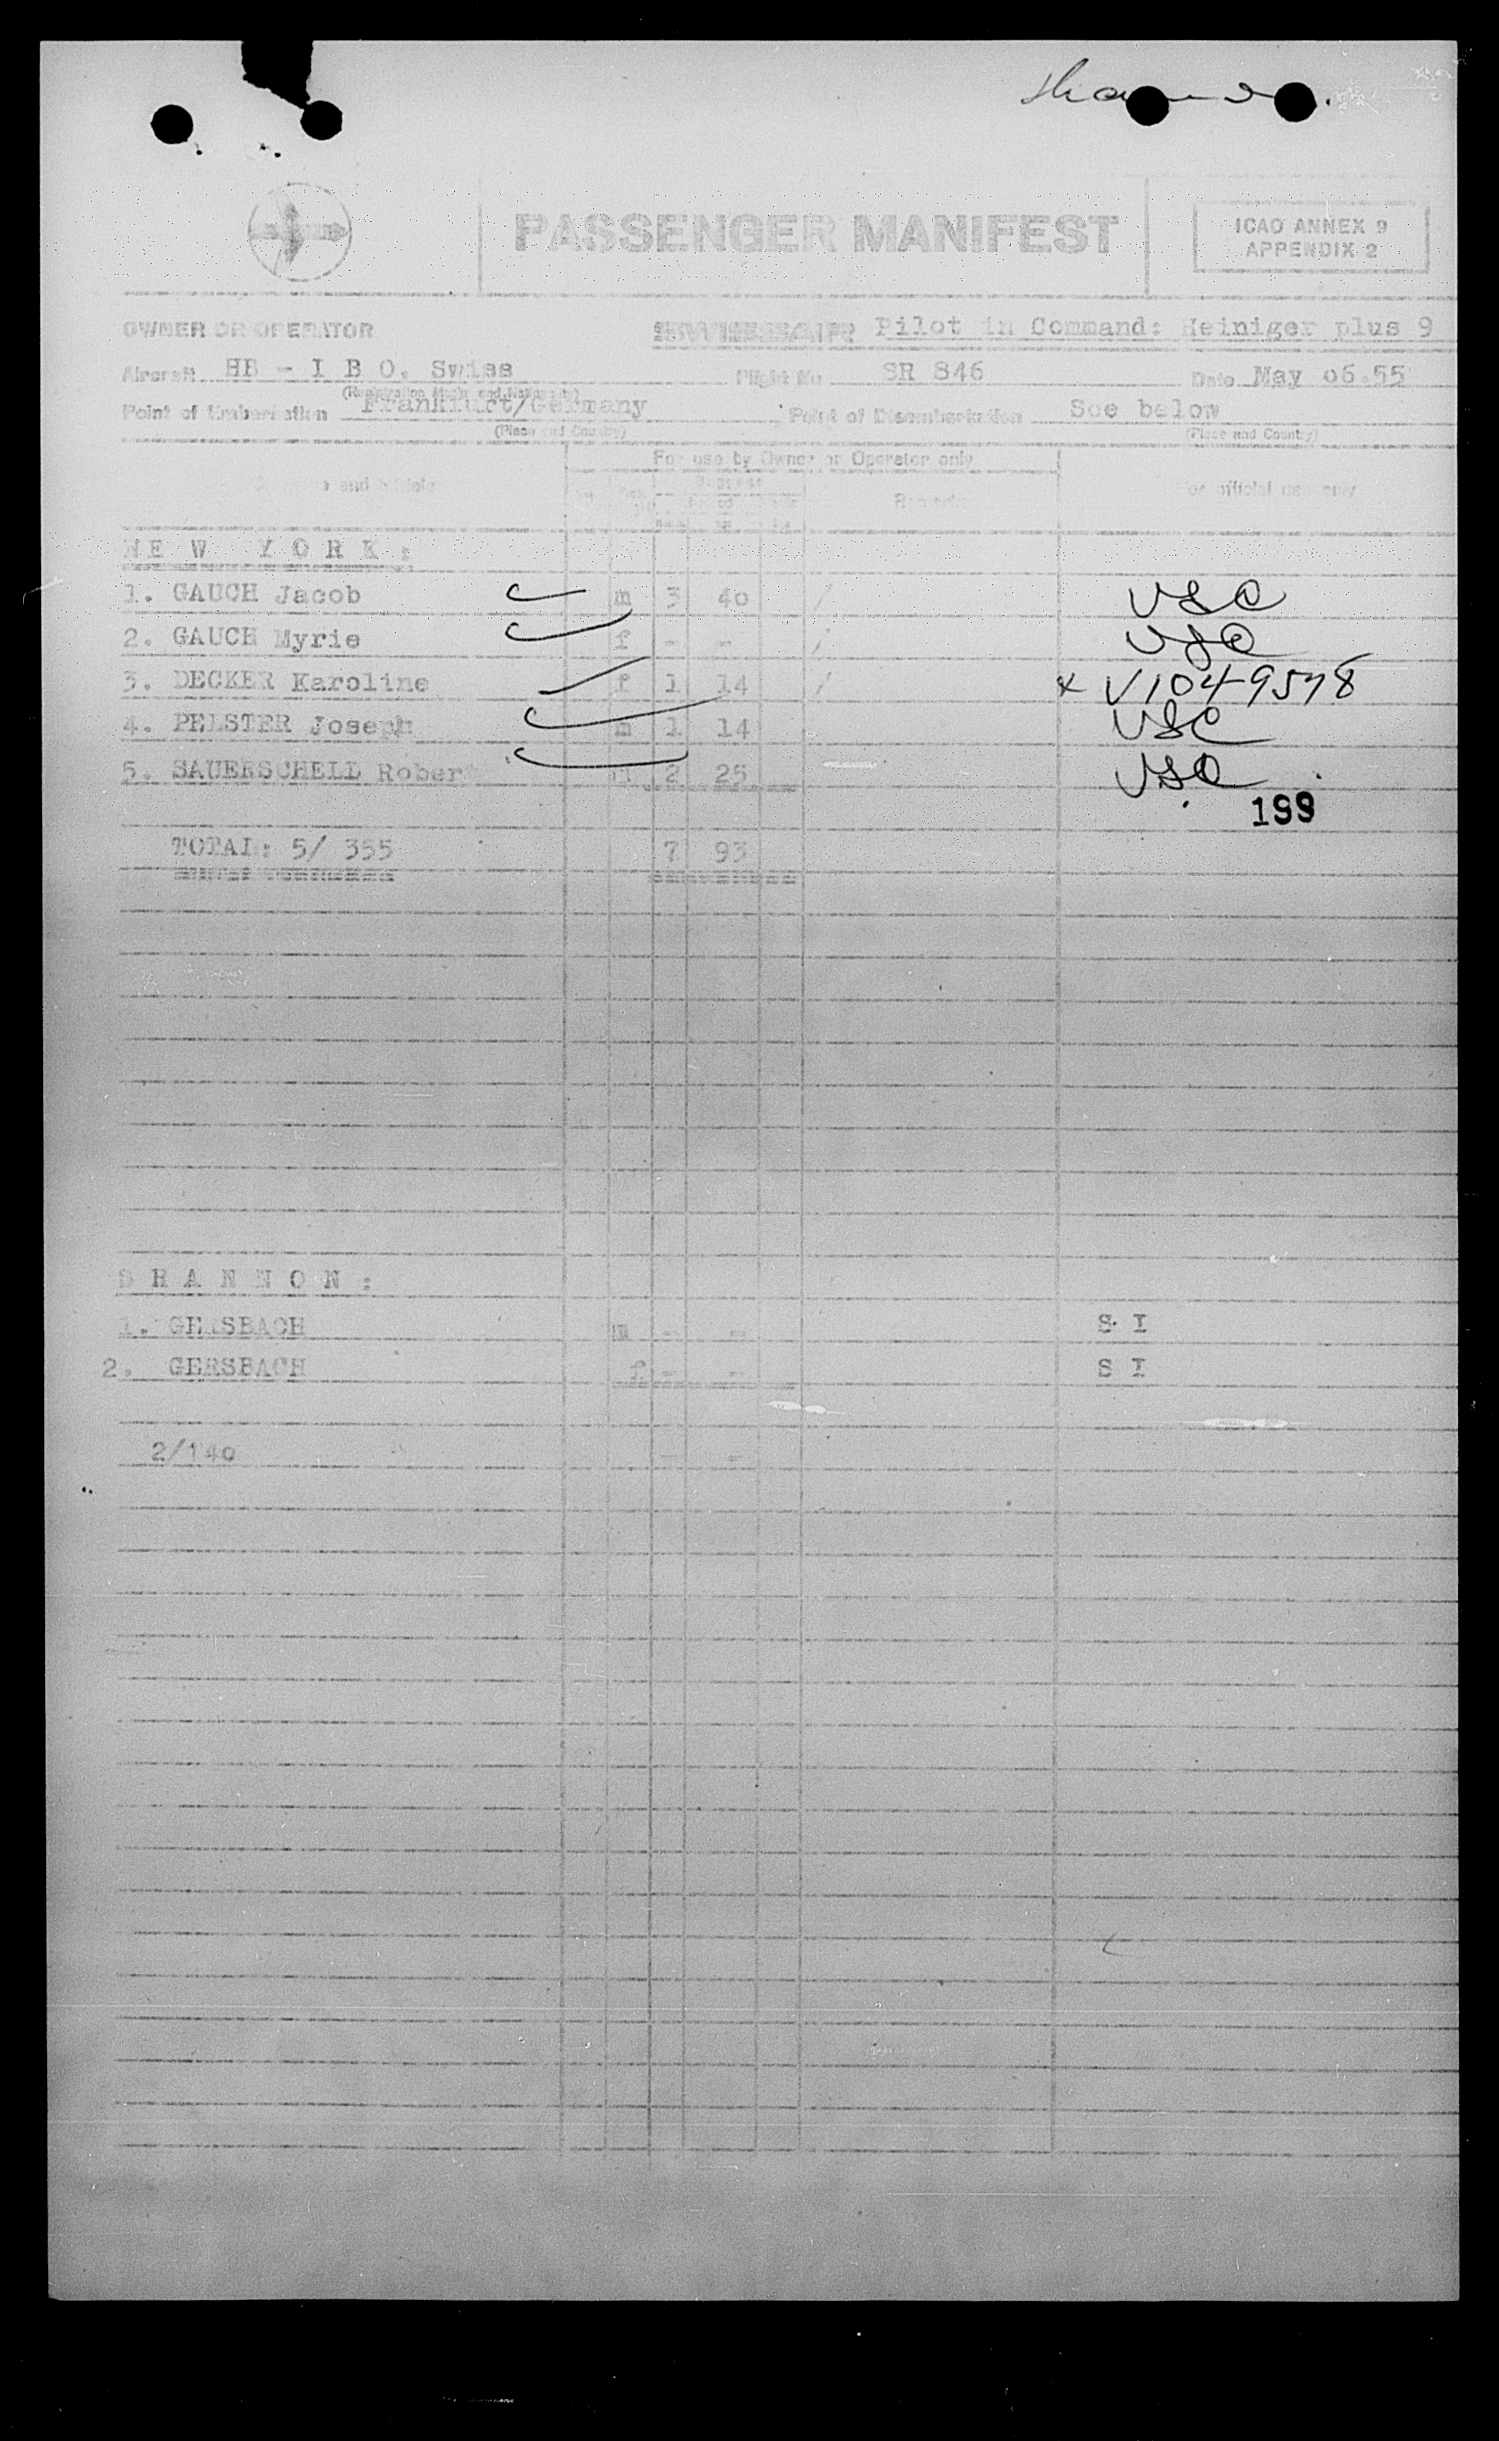 PASSENGER MANIFEST
ICAO ANNEX 9
APPENDIX 2
OWNER OR OPERATOR
Pilot in Command: Heiniger plus 9
Aircraft HB - I B O. Swiss Flight No SR 846 Date May 06.55
(Registration Marks and Nationality)
Point of Embarkation Frankfurt/Germany Point of Disembarkation See below
(Place and Country) (Place and Country)
For use by Owner or Operator only
For official use only
N E W Y O R K :
1. GAUCH Jacob m 3 40 / USC
2. GAUCH Myrie f - - / USC
3. DECKER Karoline f 1 14 / x V1049578
4. PELSTER Joseph m 1 14 USC
5. SAUERSCHELL Robert m 2 25 USC
199
TOTAL: 5/ 355 7 93
S H A N N O N :
1. GERSBACH m - - S I
2. GERSBACH f - - S I
2/140 - -